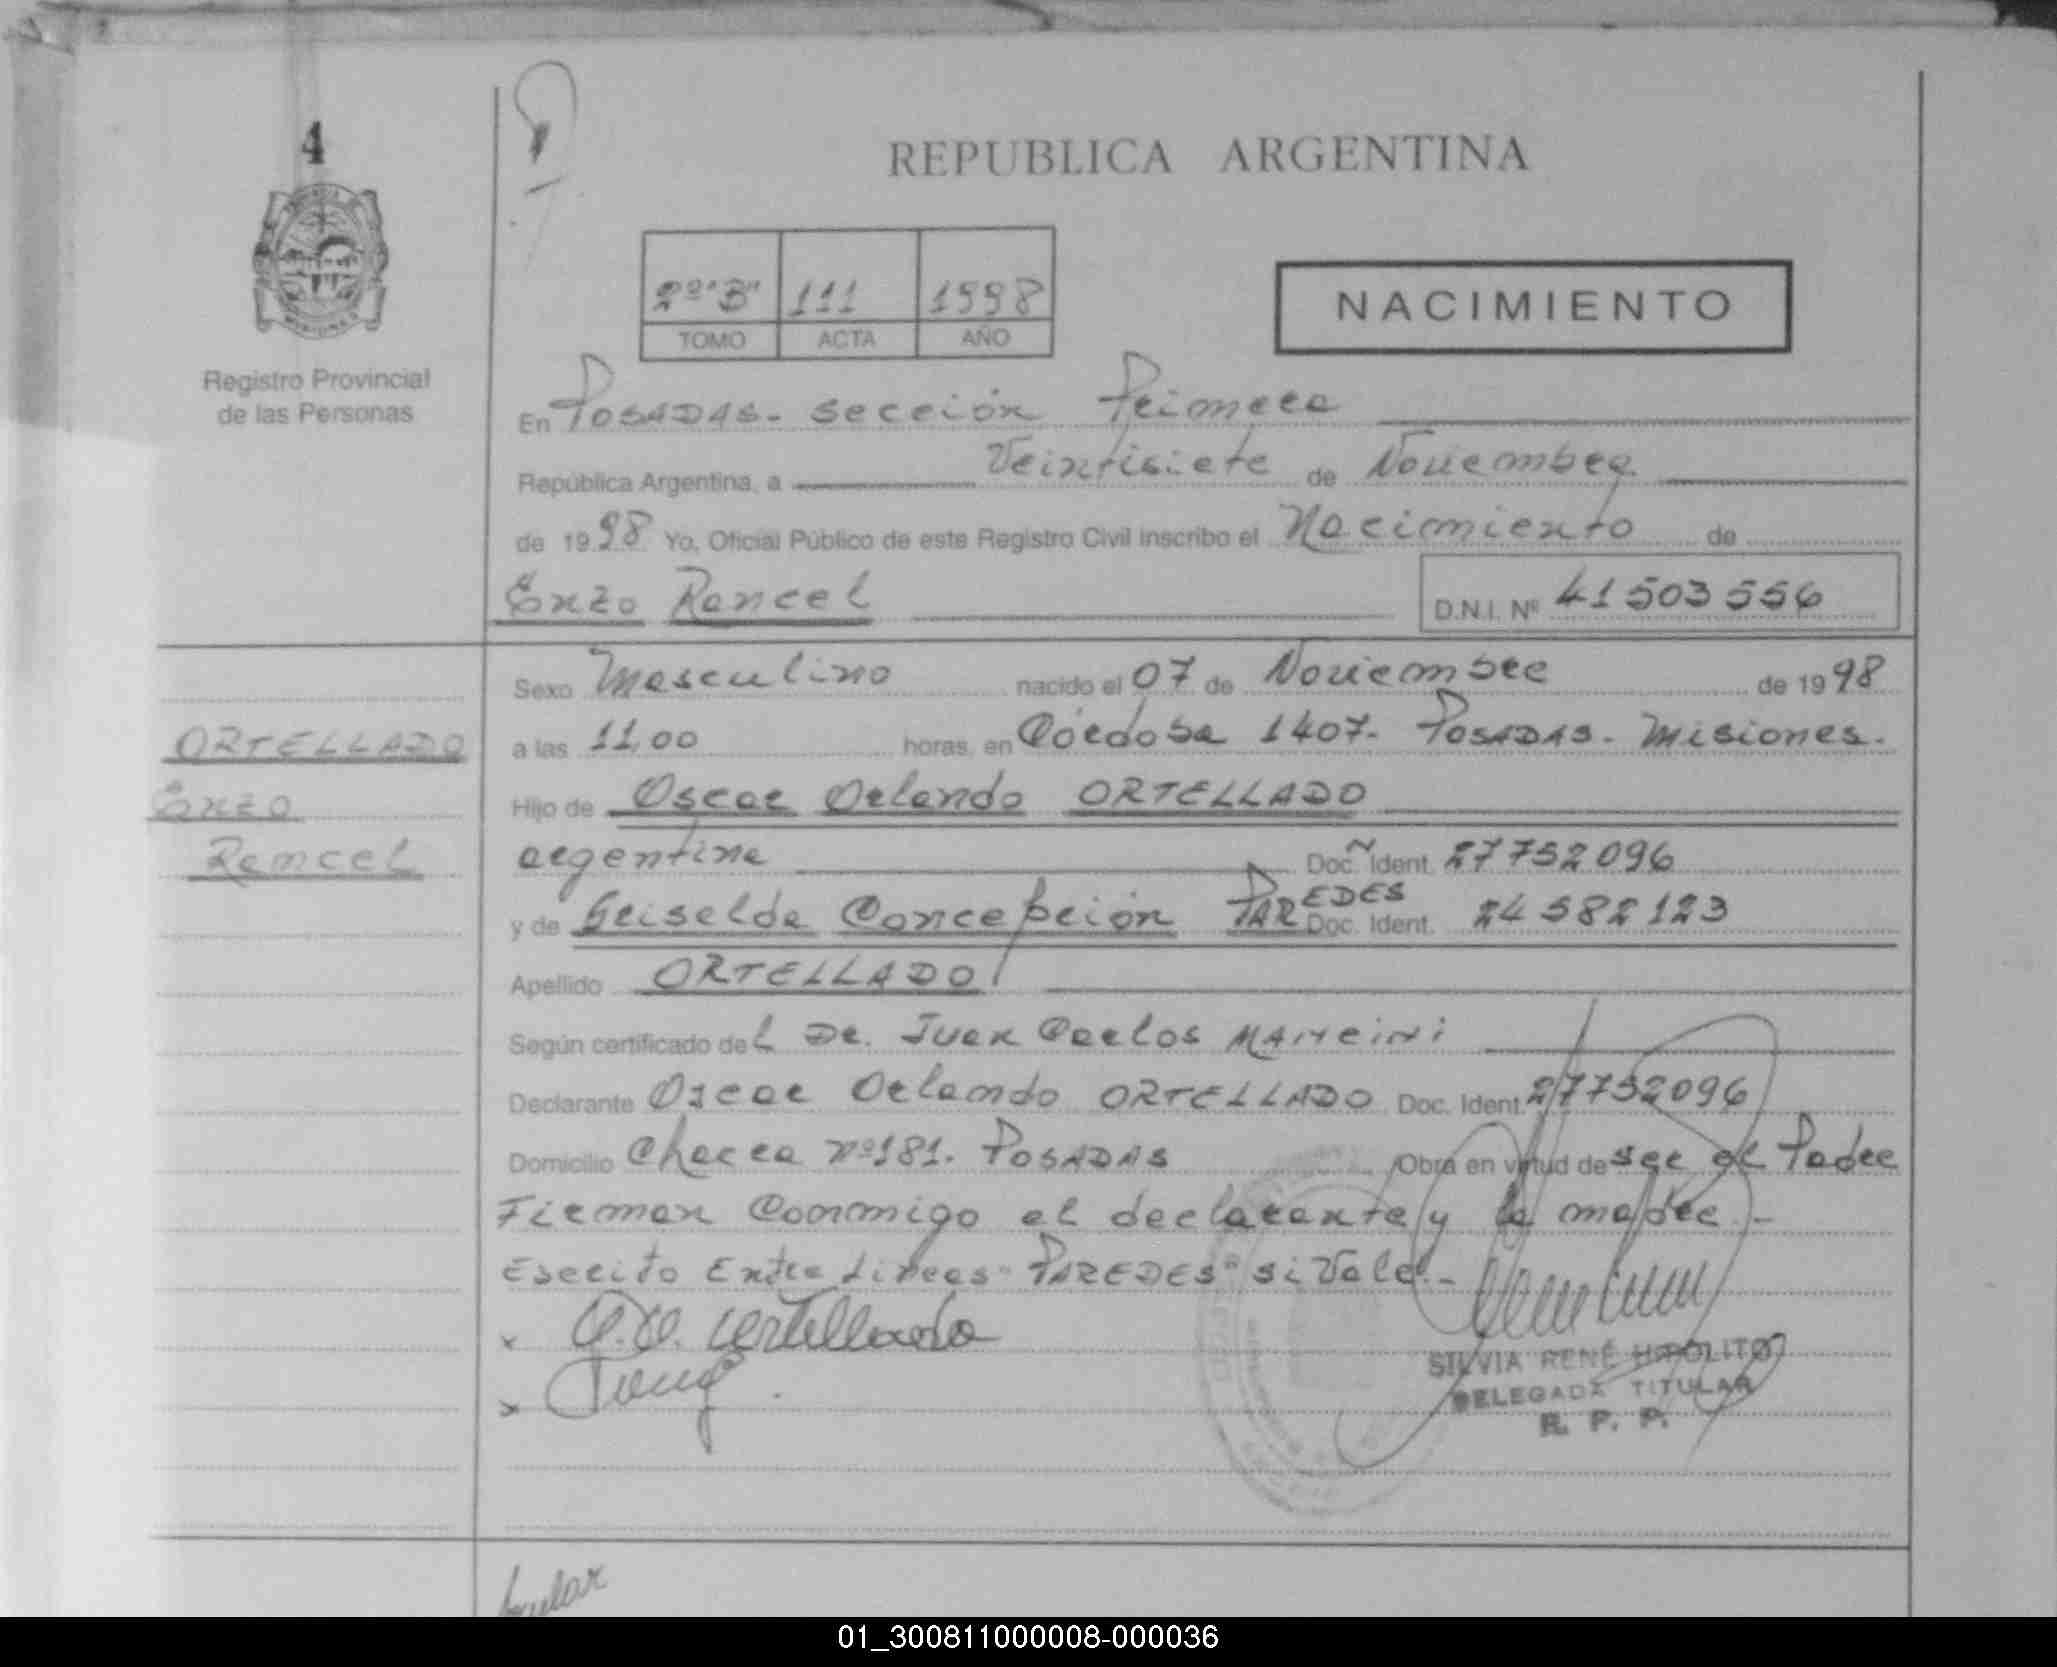 4
REPUBLICA ARGENTINA
2º "B" 111 1998
TOMO ACTA AÑO
NACIMIENTO
Registro Provincial
de las Personas
En POSADAS - sección Primera
República Argentina, a Veintisiete de Noviembre
de 1998 Yo, Oficial Público de este Registro Civil inscribo el Nacimiento de
Enzo Rancel
D.N.I. Nº 41503556
Sexo Masculino nacido el 07 de Noviembre de 1998
a las 11,00 horas, en Córdoba 1407- POSADAS - Misiones.
Hijo de Oscar Orlando ORTELLADO
argentina Doc. Ident. 27752096
y de Griselda Concepción PAREDES Doc. Ident. 24582123
Apellido ORTELLADO
Según certificado del Dr. Juan Carlos MANCINI
Declarante Oscar Orlando ORTELLADO Doc. Ident. 27752096
Domicilio Chacra nº 181. POSADAS Obra en virtud de ser el Padre
Firman Conmigo el declarante y la madre.-
Escrito Entre Lineas "PAREDES" si Vale.-
x O.O. Ortellado
x
ORTELLADO
Enzo
Ramcel
SILVIA RENÉ HIPOLITO
DELEGADA TITULAR
R. P. P.
01_300811000008-000036